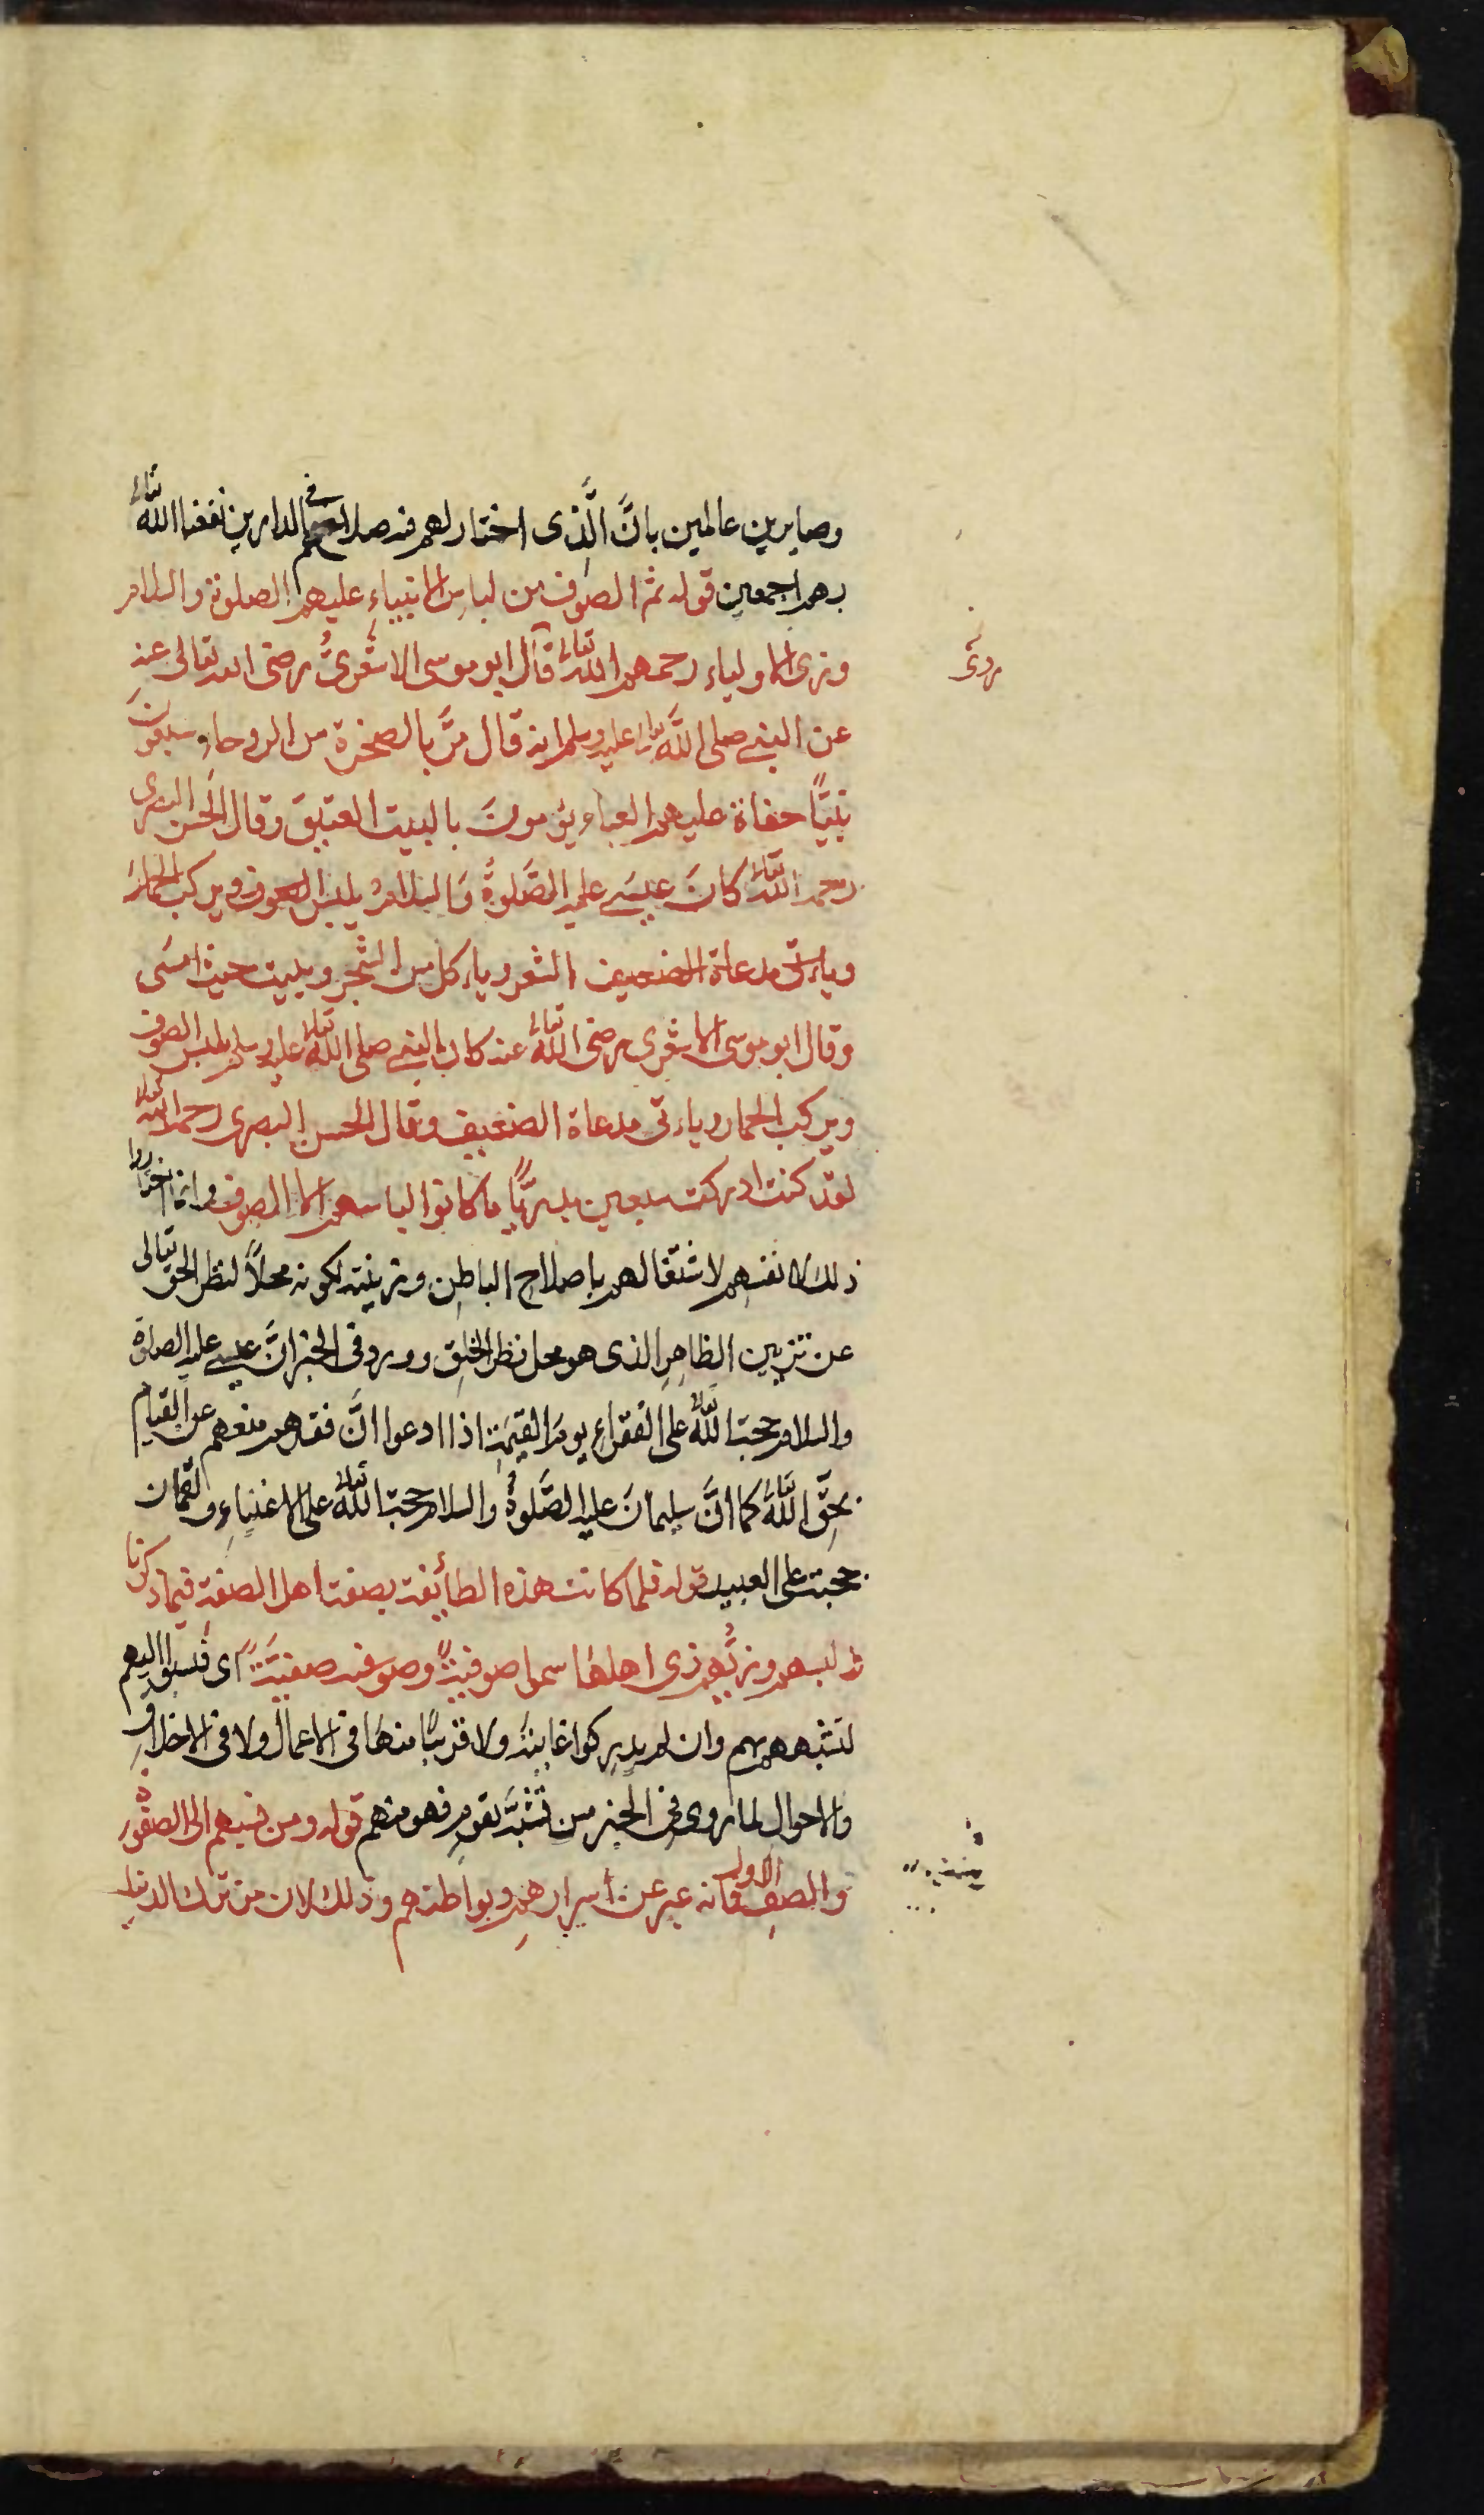 وصابرين عالمين بانَّ الَّذى اختار لهم فيه صلاحهم فى الدارين نفعنا الله تعالى
بهم اجمعين قوله ثم الصوف من لباس الانبياءِ عليهم الصلوة والسلام
وزى الاولياء رحمهم الله تعالى قال ابو موسى الاشعرىُّ رضى الله تعالى عنه
عن النبى صلى الله تعالى عليه وسلم انه قال مرَّ بالصخرة من الروحاء سبعونَ
نبيًّا حفاة عليهم العباء يؤمونَ بالبيت العتيق وقال الحسن البصرى
رحمه الله تعالى كانَ عيسى عليه الصَّلوةُ وَالسلامُ يلبس الصوف ويركب الحمارَ
وياءتى مدعاة الضعيف الشعر وياءكل من الشجر ويبيت حيث امسَى
وقال ابو موسى الاشعرى رضى الله تعالى عنه كان النبى صلى الله تعالى عليه وسلم يلبس الصوف
ويركب الحمار وياءتى مدعاة الضعيف وقال الحسن البصرى رحمه الله تعالى
لقد كنت ادركت سبعين بدريًّا ما كانوا لباسهم الا الصوف وانما اختاروا
ذلك لانفسهم لاشتغالهم باصلاح الباطِن وتزيينه لكونه محلاً لنظر الحق تعالى
عن تزيين الظاهِرِ الذى هو محل نظر الخلق وورد فى الخبر انَّ عيسى عليه الصلوة
والسلام حجة الله تعالى على الفقراءِ يومَ القيمة اذا ادعوا انَّ فقرهم منعهم عن القيام
بحقّ الله تعالى كما انَّ سليمانَ عليه الصَّلوةُ والسلام حجة الله تعالى على الاغنياءِ ولقمان
حجة على العبيد قوله فلما كانت هذه الطائفة بصفة اهل الصفة فيما ذكرنا
ولبسهم وزيُّهم زى اهلها سموا صوفيةً وصوفية صفيَّةً اى فنسبوا اليهم
لتشبههم بهم وان لم يدركوا غايةً ولا قربًا منها فى الاعمال ولا فى الاخلاقِ
والاحوال لما روى فى الخبر من تشبَّه بقومٍ فهو منهم قوله ومن نسبهم الى الصفوة
والصف الاول فانه عبر عن اسرارهم وبواطنهم وذلك لان من ترك الدنيا
روى